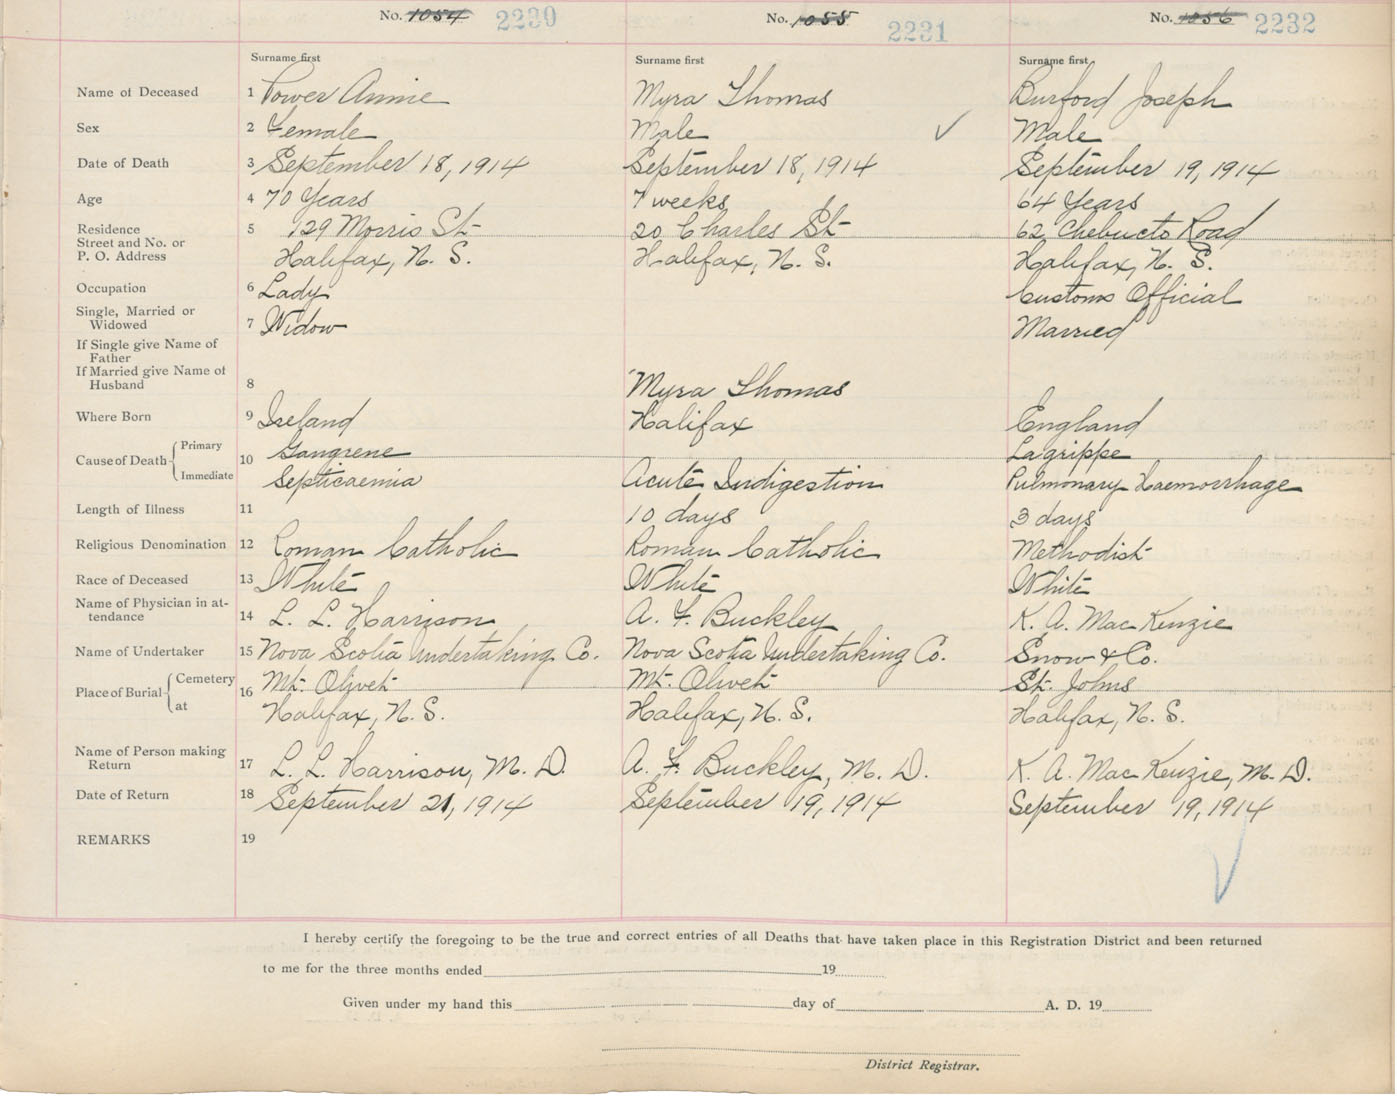 No. 1054 2230 No. 1055 2231 No. 1056 2232
Surname first Surname first Surname first
Name of Deceased 1 Power Annie Myra Thomas Burford Joseph
Sex 2 Female Male Male
Date of Death 3 September 18, 1914 September 18, 1914 September 19, 1914
Age 4 70 Years 7 weeks 64 Years
Residence 5 129 Morris St 20 Charles St 62 Chebucto Road
Street and No. or
P. O. Address Halifax, N. S. Halifax, N. S. Halifax, N. S.
Occupation 6 Lady Customs Official
Single, Married or
Widowed 7 Widow Married
If Single give Name of
Father
If Married give Name of
Husband 8 Myra Thomas
Where Born 9 Ireland Halifax England
Cause of Death 10 Primary Gangrene Lagrippe
Immediate Septicaemia Acute Indigestion Pulmonary Haemorrhage
Length of Illness 11 10 days 3 days
Religious Denomination 12 Roman Catholic Roman Catholic Methodist
Race of Deceased 13 White White White
Name of Physician in at-
tendance 14 L. L. Harrison A. F. Buckley K. A. MacKenzie
Name of Undertaker 15 Nova Scotia Undertaking Co. Nova Scotia Undertaking Co. Snow & Co.
Place of Burial 16 Cemetery Mt. Olivet Mt. Olivet St. Johns
at Halifax, N. S. Halifax, N. S. Halifax, N. S.
Name of Person making
Return 17 L. L. Harrison, M. D. A. F. Buckley, M. D. K. A. MacKenzie, M. D.
Date of Return 18 September 21, 1914 September 19, 1914 September 19, 1914
REMARKS 19
I hereby certify the foregoing to be the true and correct entries of all Deaths that have taken place in this Registration District and been returned
to me for the three months ended 19
Given under my hand this day of A. D. 19
District Registrar.